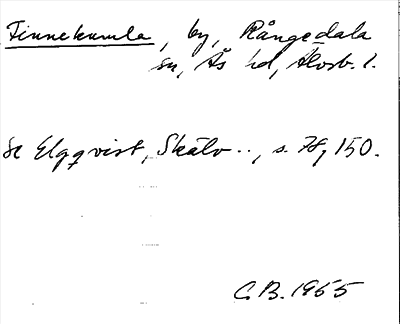 Finnekumla, by, Rångedala
sn, Ås hd, Älvsb. l.
Se Elgqvist, Skälv.., s. 78, 150.
C.B. 1955